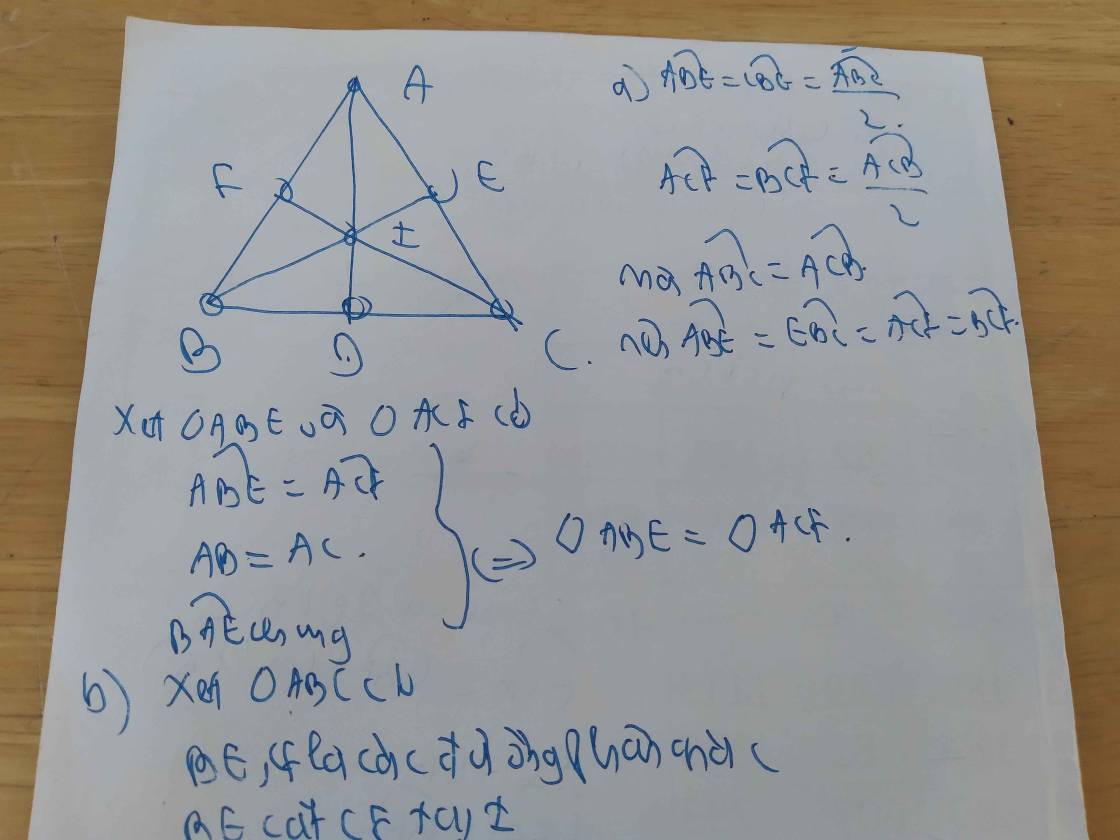 A
F
E
I
B
D
C.
a) ABE = CBE = ABC/2.
ACF = BCF = ACB/2
mà ABC = ACB.
nên ABE = EBC = ACF = BCF.
Xét △ABE và △ACF có
ABE = ACF
AB = AC.
BAE chung
(=> △ABE = △ACF.
b) Xét △ABC có
BE, CF là các đường phân giác
BE cắt CF tại I